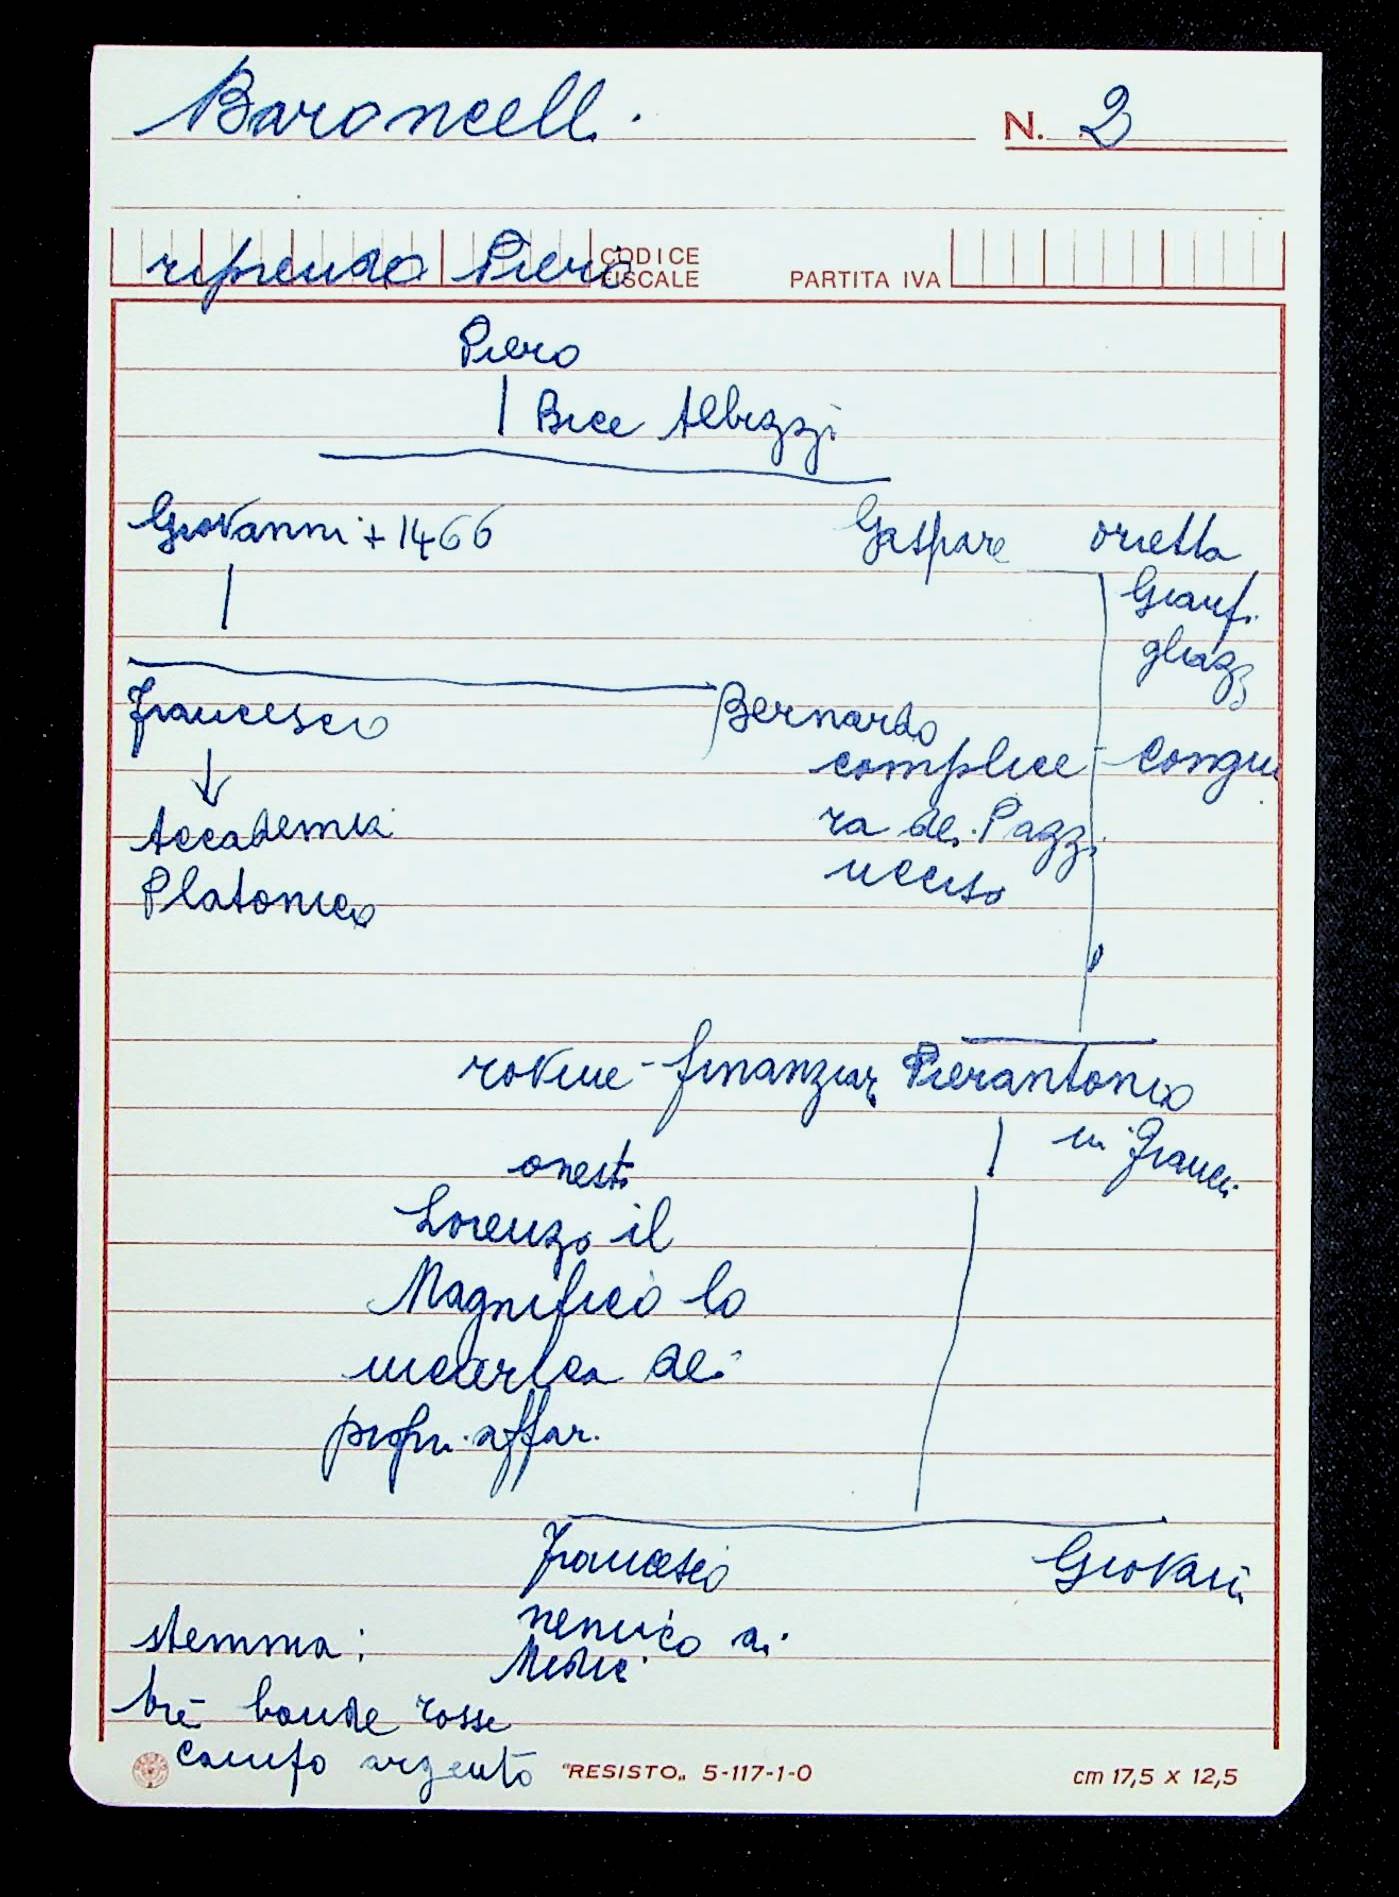 Baroncelli
N. 2
riprendo Piero
CODICE FISCALE
PARTITA IVA
Piero
Bice Albizzi
Giovanni + 1466
Gaspare orietta
Gianfi
gliazzi
Francesco
Bernardo
complice - congiu
ra dei Pazzi
ucciso
Accademia
Platonica
rovine - finanziar Pierantonio
in Francia
onesti
Lorenzo il
Magnifico lo
incarica dei
propri affari
Francesco
Giovanni
nemico ai
Medici
stemma:
tre bande rosse
campo argento
"RESISTO„ 5-117-1-0
cm 17,5 x 12,5